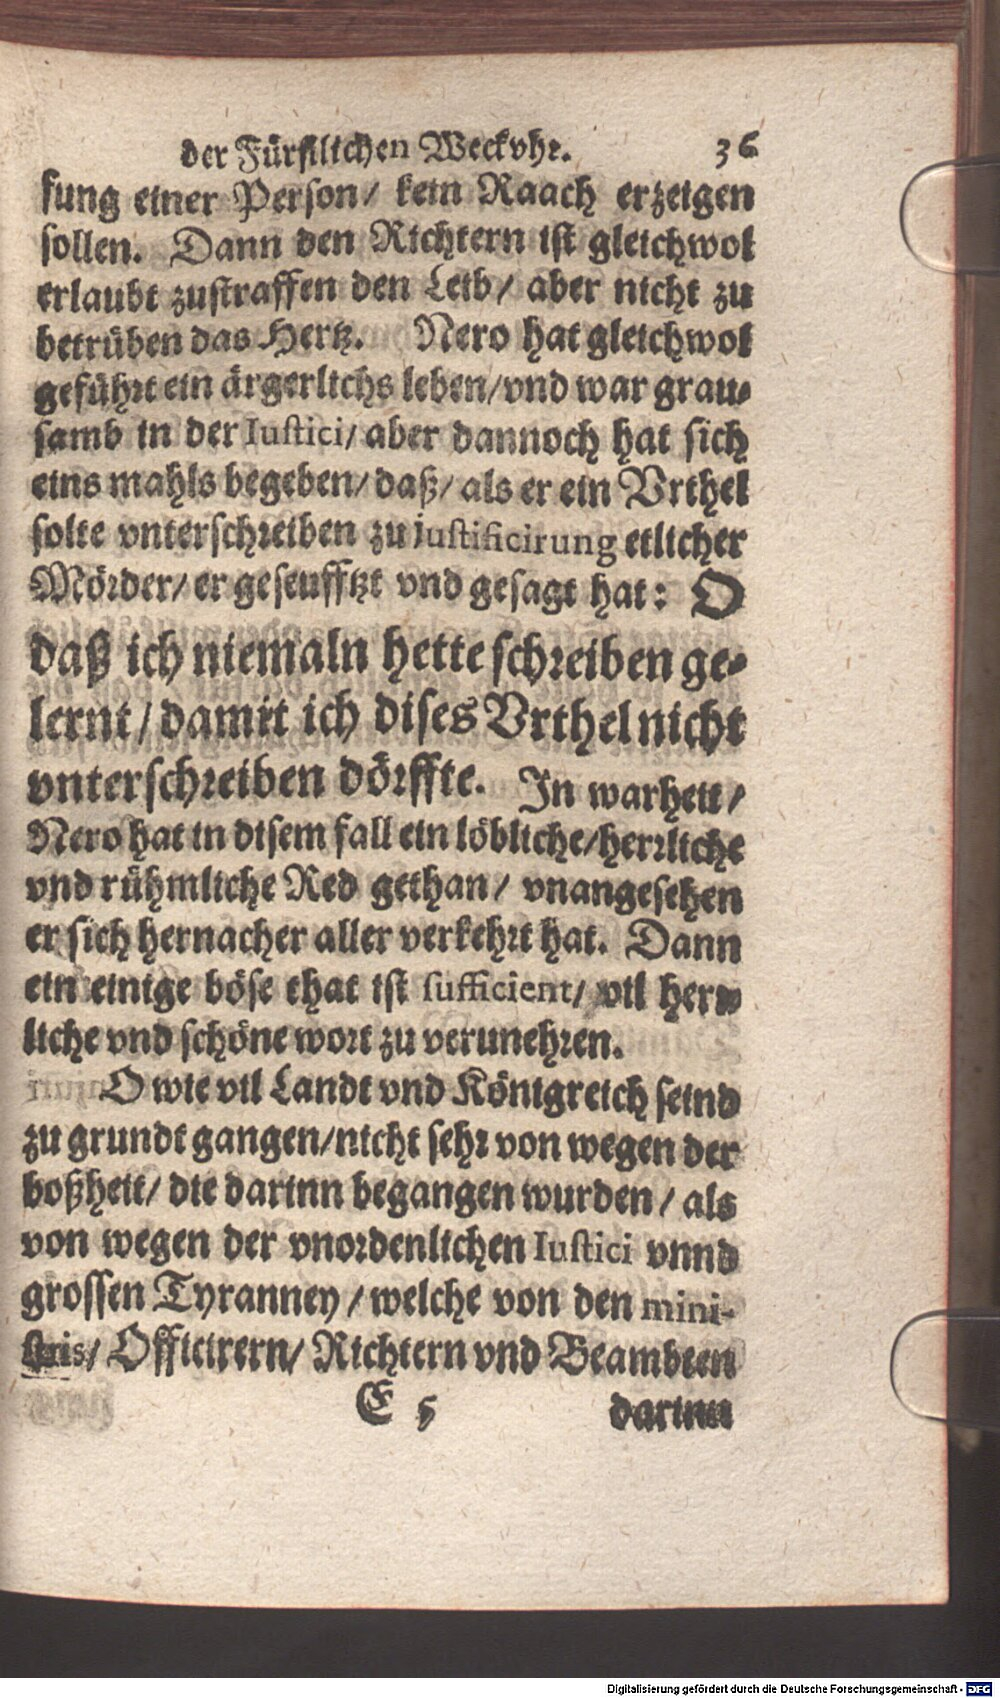 der Fürstlichen Weckvhr. 36
fung einer Person/ kein Raach erzeigen
sollen. Dann den Richtern ist gleichwol
erlaubt zustraffen den Leib/ aber nicht zu
betrüben das Hertz. Nero hat gleichwol
geführt ein ärgerlichs leben/ vnd war grau-
samb in der Iustici/ aber dannoch hat sich
eins mahls begeben/ daß/ als er ein Vrthel
solte vnterschreiben zu justificirung etlicher
Mörder/ er geseufftzt vnd gesagt hat: O
daß ich niemaln hette schreiben ge-
lernt/ damit ich dises Vrthel nicht
vnterschreiben dörffte. In warheit/
Nero hat in disem fall ein löbliche/ herrliche
vnd rühmliche Red gethan/ vnangesehen
er sich hernacher aller verkehrt hat. Dann
ein einige böse that ist sufficient/ vil herr-
liche vnd schöne wort zu verunehren.
O wie vil Landt vnd Königreich seind
zu grundt gangen/ nicht sehr von wegen der
boßheit/ die darinn begangen wurden/ als
von wegen der vnordenlichen Iustici vnnd
grossen Tyranney/ welche von den mini-
stris/ Officirern/ Richtern vnd Beambten
E 5 darinn
Digitalisierung gefördert durch die Deutsche Forschungsgemeinschaft - DFG